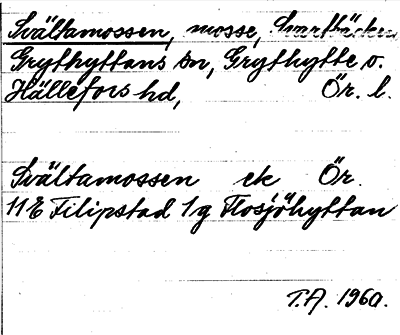 Svältamossen, mosse, Svartbäcken,
Grythyttans sn, Grythytte o.
Hällefors hd, Ör. l.
Svältamossen ek Ör.
11E Filipstad 1g Flosjöhyttan
T.A. 1960.